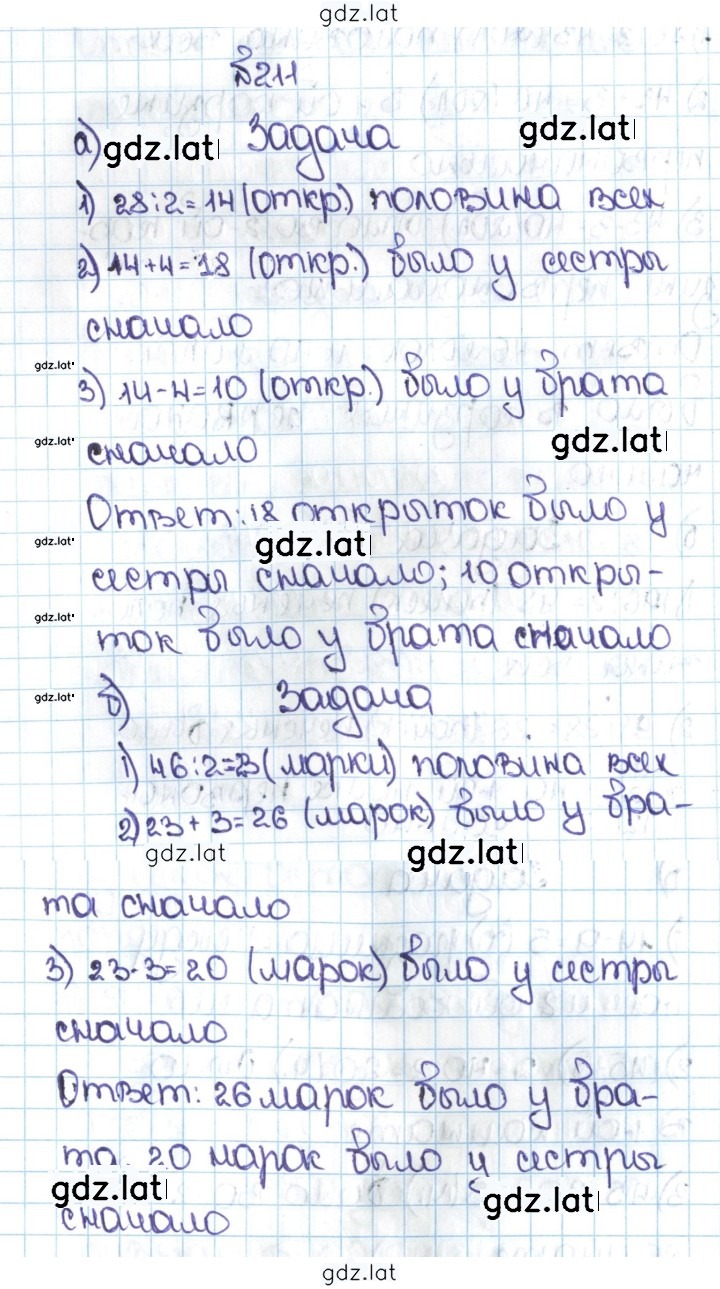 gdz.lat
№211
а) Задача
gdz.lat gdz.lat
1) 28:2=14 (откр.) половина всех
2) 14+4=18 (откр.) было у сестры
сначало
gdz.lat
3) 14-4=10 (откр.) было у брата
gdz.lat gdz.lat
сначало
Ответ: 18 открыток было у
gdz.lat gdz.lat
сестры сначало; 10 откры-
gdz.lat
ток было у брата сначало
gdz.lat
б) Задача
1) 46:2=23 (марки) половина всех
2) 23+3=26 (марок) было у бра-
gdz.lat gdz.lat
та сначало
3) 23-3=20 (марок) было у сестры
сначало
Ответ: 26 марок было у бра-
та, 20 марок было у сестры
gdz.lat gdz.lat
сначало
gdz.lat